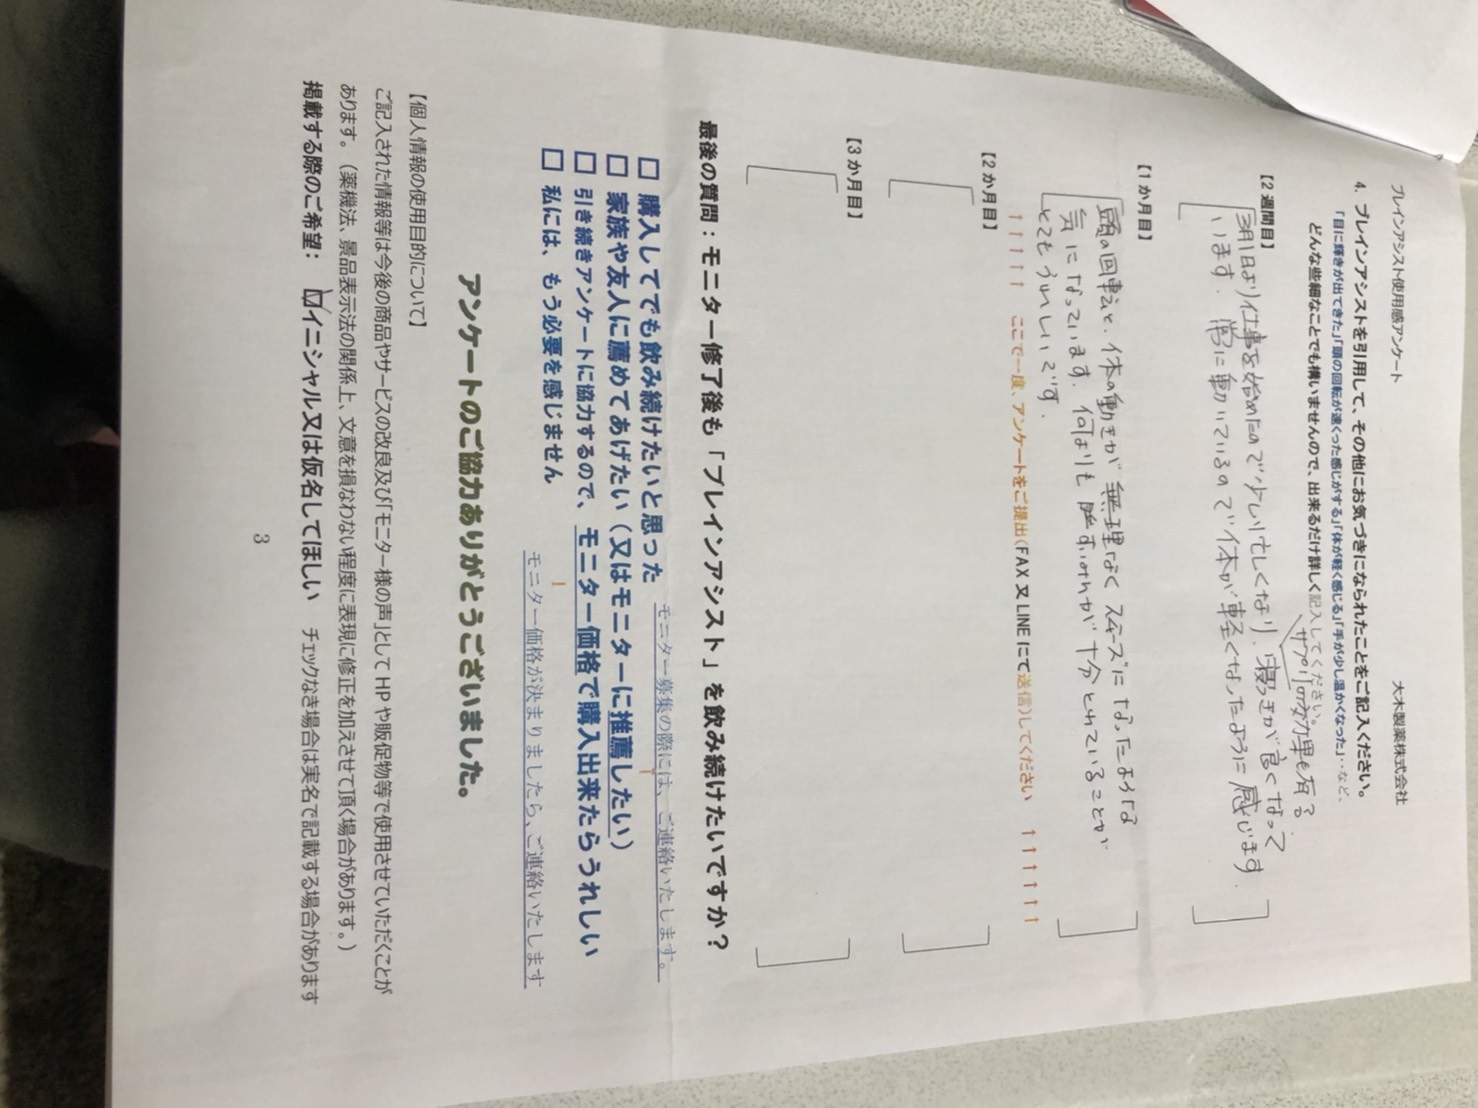 ブレインアシスト使用感アンケート　大木製薬株式会社
4. ブレインアシストを引用して、その他にお気づきになられたことをご記入ください。
「目に輝きが出てきた」「頭の回転が速くった感じがする」「体が軽く感じる」「手が少し温かくなった」…など、
どんな些細なことでも構いませんので、出来るだけ詳しく記入してください。
サプリの効果も有る
【2 週間目】
より仕事を始めたので少し忙しくなり、寝つきが良くなって
います。常に動いているので体が軽くなったように感じます.
【1 か月目】
頭の回転と、体の動きが無理なくスムーズになったような
気になっています。何よりも睡が十分とれていることが
とてもうれしいです.
↑↑↑↑ ここで一度、アンケートをご提出(FAX 又 LINE にて送信)してください ↑↑↑↑↑↑
【2 か月目】
【3 か月目】
最後の質問：モニター修了後も「ブレインアシスト」を飲み続けたいですか？
□ 購入してでも飲み続けたいと思った
モニター募集の際には、ご連絡いたします。
□ 家族や友人に薦めてあげたい（又はモニターに推薦したい）
□ 引き続きアンケートに協力するので、モニター価格で購入出来たらうれしい
モニター価格が決まりましたら、ご連絡いたします
□ 私には、もう必要を感じません
アンケートのご協力ありがとうございました。
【個人情報の使用目的について】
ご記入された情報等は今後の商品やサービスの改良及び「モニター様の声」として HP や販促物等で使用させていただくことが
あります。（薬機法、景品表示法の関係上、文意を損なわない程度に表現に修正を加えさせて頂く場合があります。）
掲載する際のご希望： ☑イニシャル又は仮名してほしい　チェックなき場合は実名で記載する場合があります
3